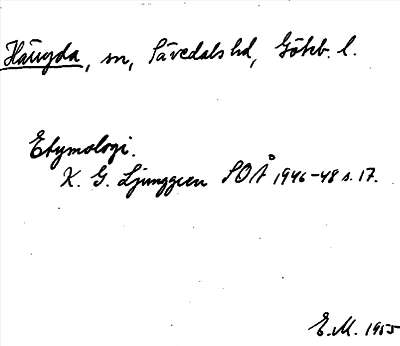 Häugda, sn, Sävedals hd, Göteb. l.
Etymologi.
K. G. Ljunggren SOÅ 1946-48 s. 17.
E.M. 1955